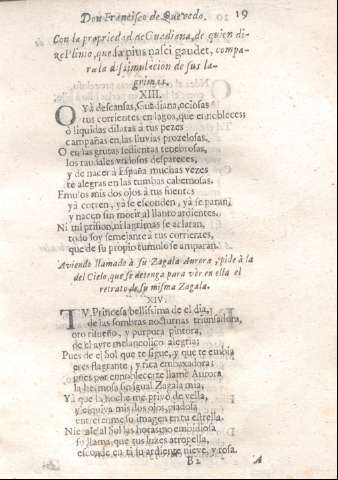 Don Francisco de Quevedo. 19
Con la propriedad de Guadiana, de quien di-
ze Plinio, que sæpius nasci gaudet, compa-
ra la dissimulacion de sus la-
grimas.
XIII.
O Yà descansas, Guadiana, ociosas
tus corrientes en lagos, que ennobleces:
ò liquidas dilatas à tus pezes
campañas en las lluvias prozelosas.
O en las grutas sedientas tenebrosas,
los raudales undosos despareces,
y de nacer à España muchas vezes
te alegras en las tumbas cabernosas.
Emulos mis dos ojos à tus fuentes
yà corren, yà se esconden, yà se paran,
y nacen sin morir al llanto ardientes.
Ni mi prision, ni lagrimas se aclaran,
todo soy semejante à tus corrientes,
que de su propio tumulo se amparan.
Aviendo llamado à su Zagala Aurora, pide à la
del Cielo, que se detenga para vèr en ella el
retrato de su misma Zagala.
XIV.
TV Princesa bellissima de el dia,
de las sombras nocturnas triunfadora,
oro risueño, y purpura pintora,
de el ayre melancolico alegria;
Pues de el Sol que te sigue, y que te embia
eres flagrante, y rica embaxadora;
pues por ennoblecerte llamè Aurora
la hermosa sin igual Zagala mia,
Yà que la noche me privò de vella,
y esquiva mis dos ojos, piadosa
entretenme su imagen en tu estrella.
Niegale al Sol las horas
su llama, que sus luzes atropella,
esconde en ti su ardiente nieve, y rosa.
B2 A